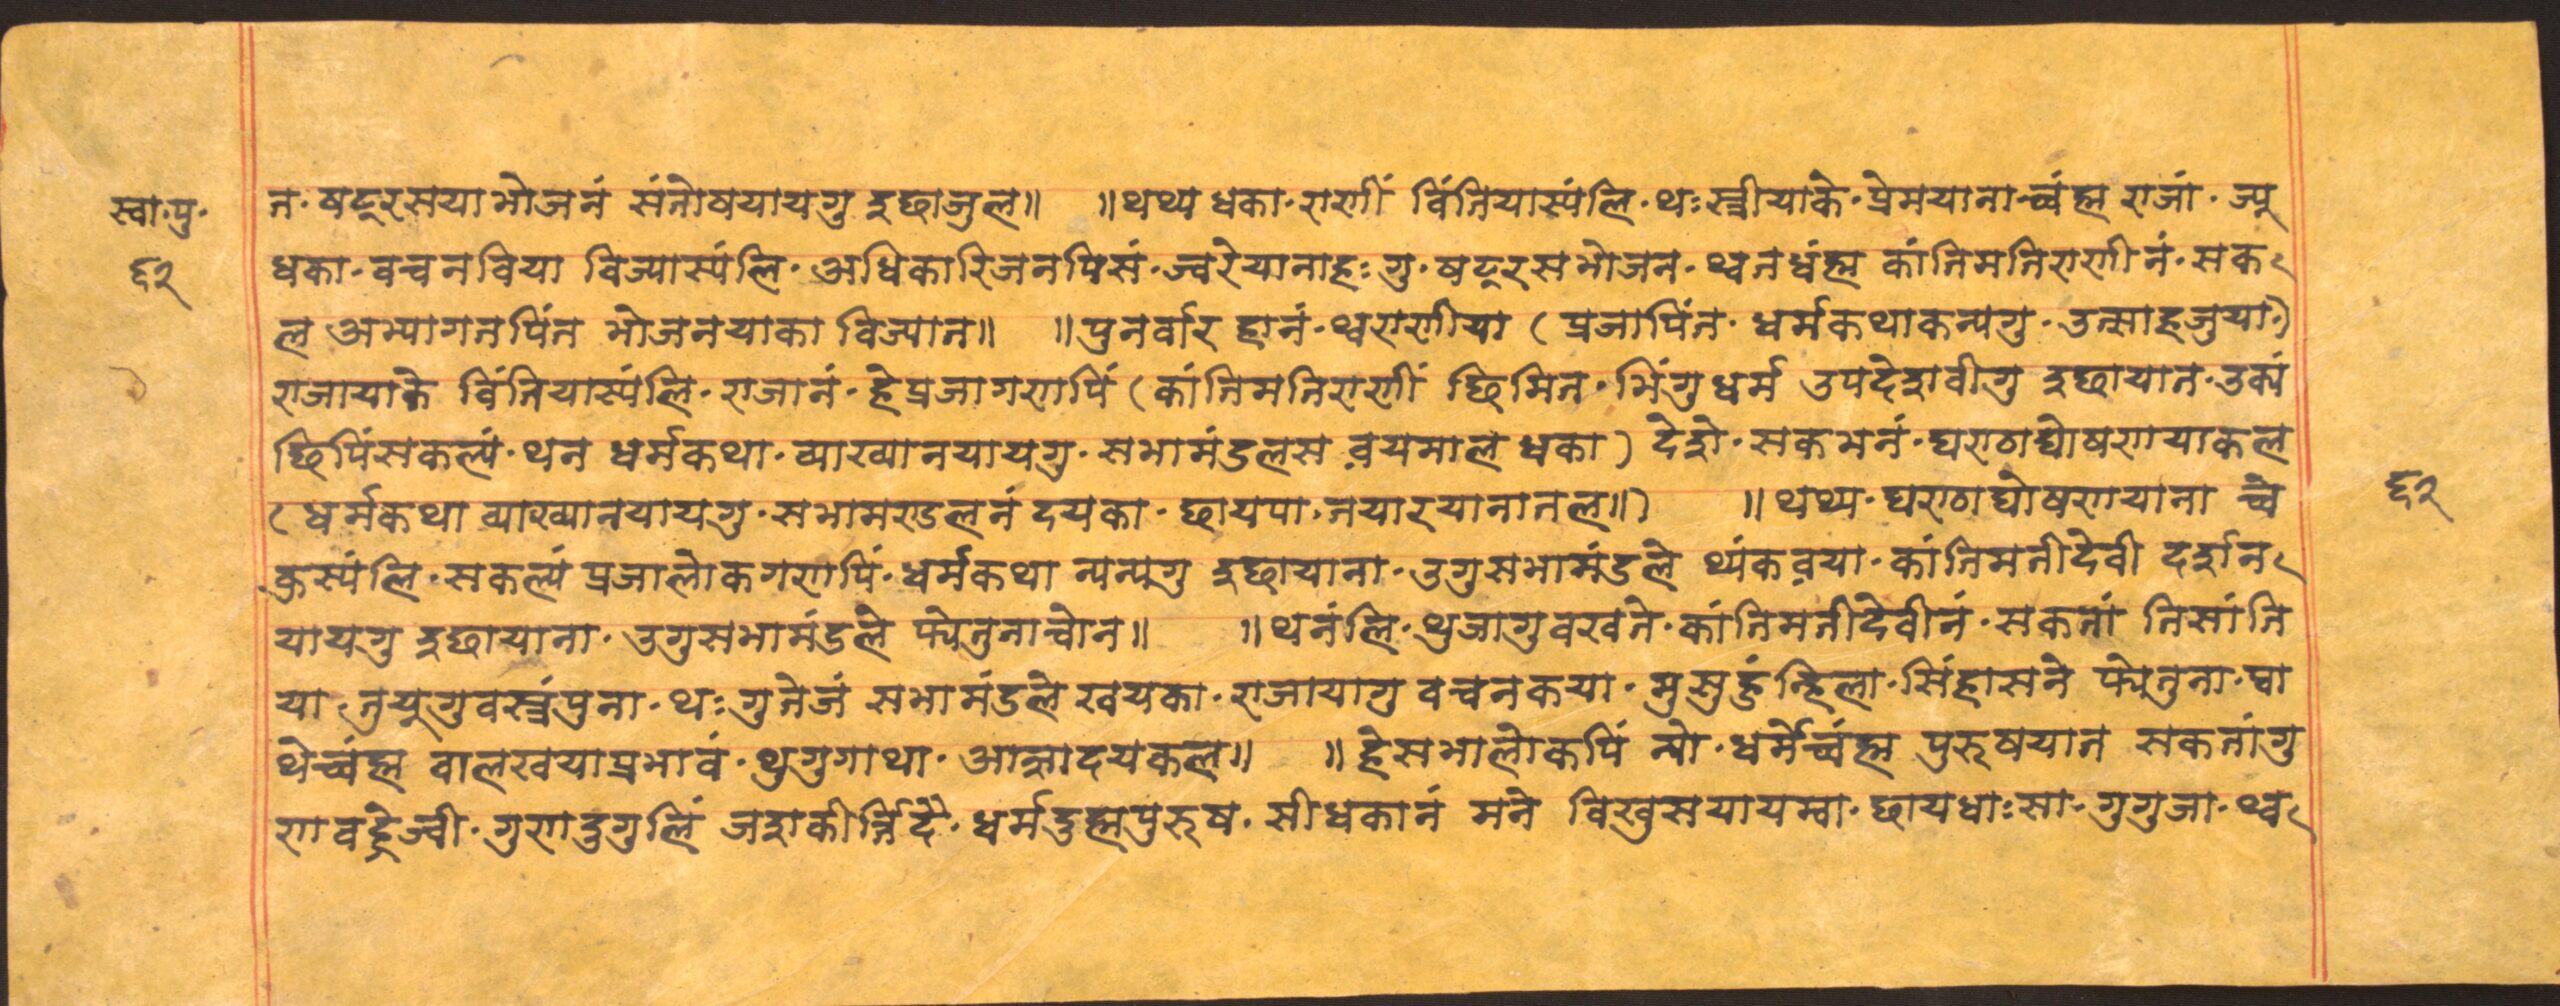 स्वा·पु·
६२
न·षट्रसयाभोजनं संतोषयायगु इछाजुल॥ ॥थथ्य धका·राणीं विंतियास्यंलि·थःस्त्रीयाके·प्रेमयाना·च्वंह्म राजां·ज्यू
धका·वचनविया विज्यास्यंलि·अधिकारिजनपिसं·ज्वरेयानाहः गु·षट्रसभोजन·थ्वनध्वंह्म कांतिमतिराणीनं·सक
ल अभ्यागतपिंत भोजनयाका विज्यात॥ ॥पुनर्वार हानं·थ्वराणीया (प्रजापिंत·धर्मकथाकन्यगु·उत्साहजुया)
राजायाके विंतियास्यंलि·राजानं·हेप्रजागणपिं (कांतिमतिराणीं छिमित·भिंगुधर्म उपदेशवीगु इछायात·उकिं
छिपिंसकल्यं·थन धर्मकथा·व्याख्यानयायगु·सभामंडलस वयमाल धका) देशे·सकभनं·घण्ठाघोषणायाकल
(धर्मकथा व्याख्यानयायगु·सभामण्डलनं दयका·छायपा·तयारयानातल॥) ॥थथ्य·घण्ठाघोषणायाना च्वे
कुस्यंलि·सकल्यं प्रजालोकगणपिं·धर्मकथा न्यन्यगु इछायाना·उगुसभामंडले थ्यंकवया·कांतिमतीदेवी दर्शन
यायगु इछायाना·उगुसभामंडले फ्येतुनाच्वोन॥ ॥थनंलि·थुजागुवखते·कांतिमतीदेवीनं·सकतां निसांति
या·तुयूगुवस्त्रंपुना·थःगुतेजं सभामंडले खयका·राजायागु वचनकया·मुसुहुंन्हिला·सिंहासने फ्येतुना·घा
थेच्वंह्म वालखयाप्रभावं·थुगुगाथा·आज्ञादयकल॥ ॥हेसभालोकपिं न्यो·धर्मेच्वंह्म पुरुषयात सकतांगु
ण वढ्रेज्वी·गुणदुगुलिं जशकीर्त्तिदै·धर्मदुह्मपुरुष·सीधकानं मने विखुसयायम्वा·छायधाःसा·गुगुजा·थ्व
६२